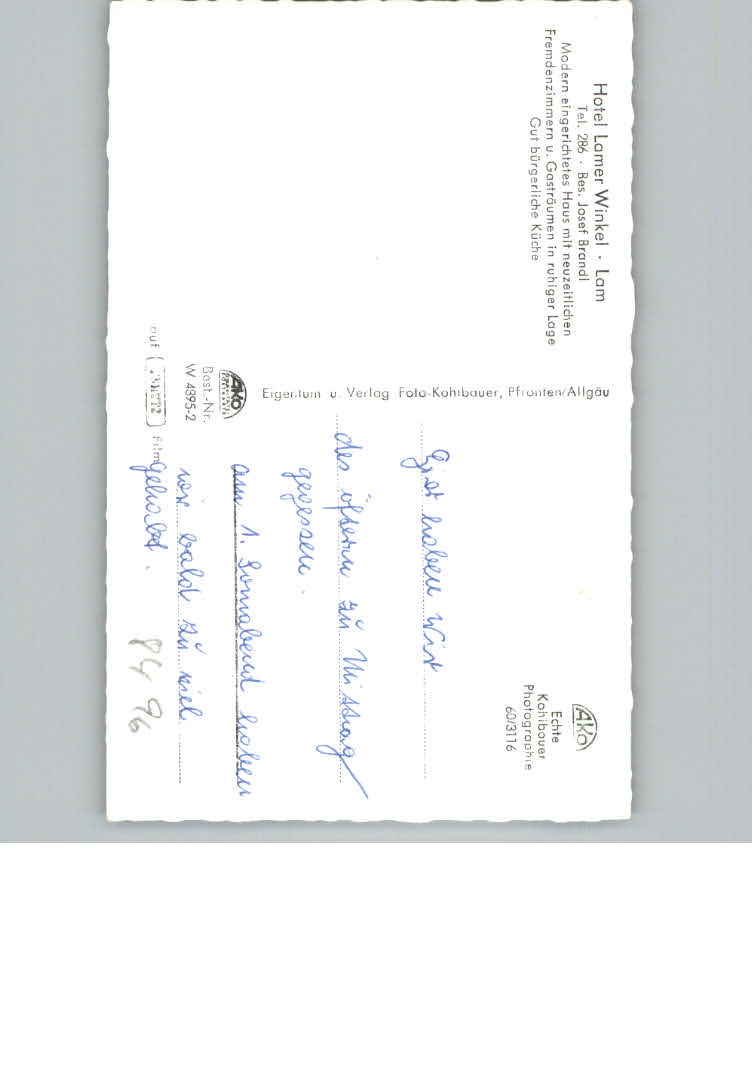 Hotel Lamer Winkel · Lam
Tel. 286 · Bes. Josef Brandl
Modern eingerichtetes Haus mit neuzeitlichen
Fremdenzimmern u. Gasträumen in ruhiger Lage
Gut bürgerliche Küche
Eigentum u. Verlag Foto-Kohlbauer, Pfronten/Allgäu
AKO
Best.-Nr.
W 4395-2
auf
Film
AKO
Echte
Kohlbauer
Photographie
60/3116
haben wir
des öfteren zu Mittag
gegessen.
am 1. Sonnabend haben
wir bald zu viel
gehabt.
84 96